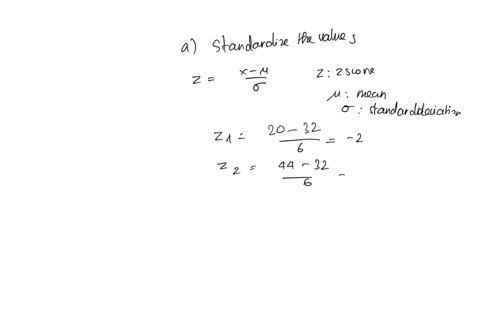 a) Standardize the values
z = x-μ/σ z: z score
μ: mean
σ: standard deviation
z1 = 20-32/6 = -2
z2 = 44-32/6 =